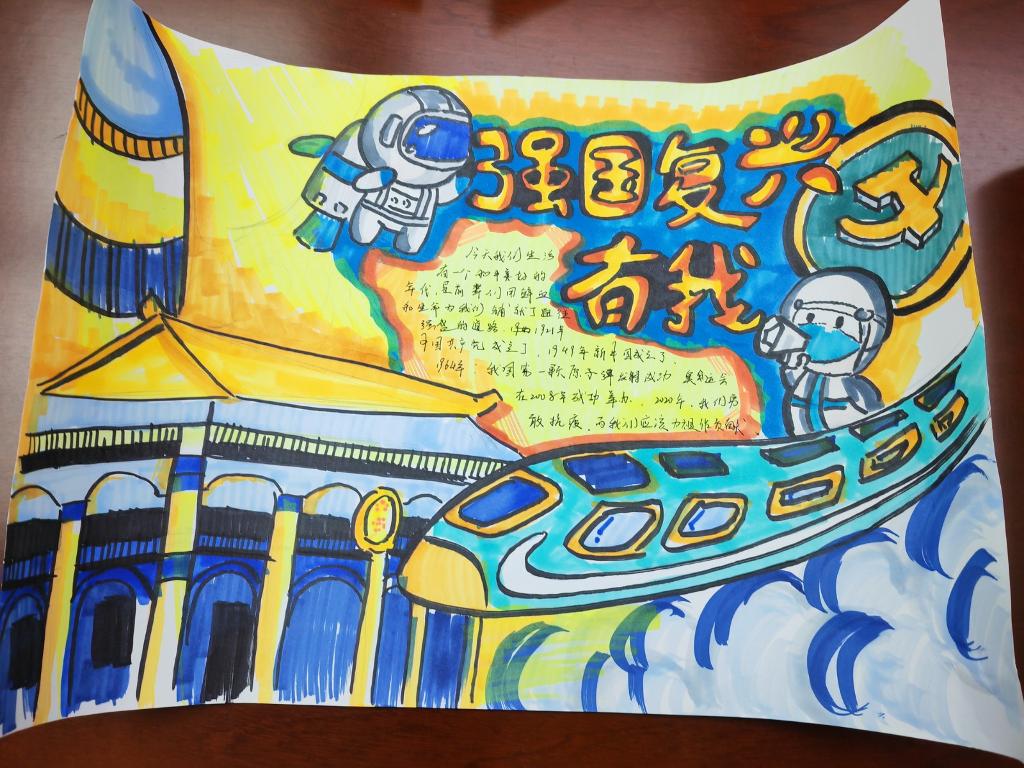 强国复兴
有我
今天我们生活
在一个和平美好的
年代,是前辈们用鲜血
和生命为我们铺就了通往
强盛的道路,
1921年
中国共产党成立了,1949年新中国成立了,
1964年:我国第一颗原子弹发射成功 奥运会
在2008年成功举办,2020年,我们勇
敢抗疫,而我们应该为祖作贡献